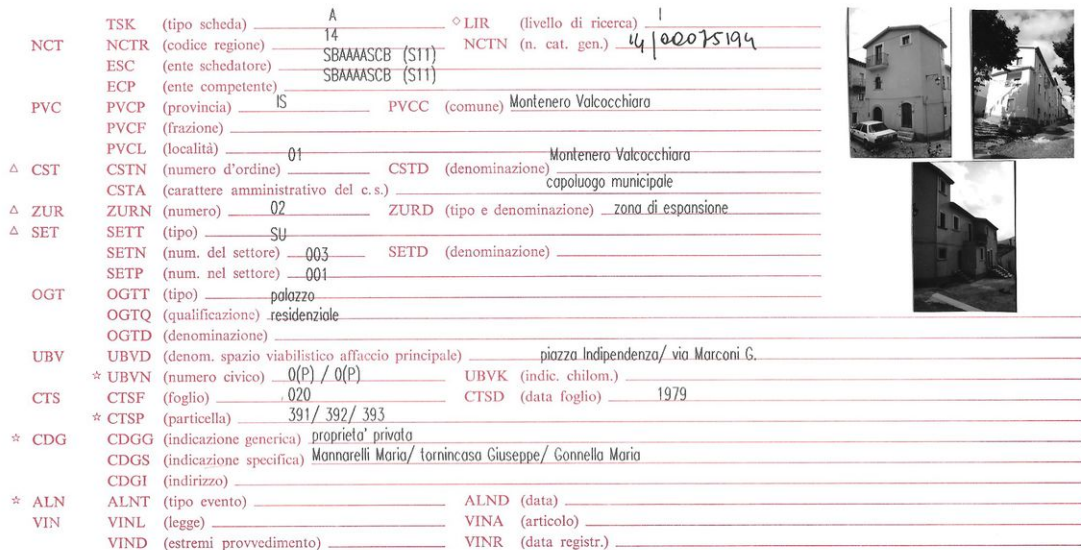 TSK (tipo scheda) A ◇ LIR (livello di ricerca) I
NCT NCTR (codice regione) 14 NCTN (n. cat. gen.) 14/00075194
ESC (ente schedatore) SBAAAASCB (S11)
ECP (ente competente) SBAAAASCB (S11)
PVC PVCP (provincia) IS PVCC (comune) Montenero Valcocchiara
PVCF (frazione)
PVCL (località)
△ CST CSTN (numero d'ordine) 01 CSTD (denominazione) Montenero Valcocchiara
CSTA (carattere amministrativo del c.s.) capoluogo municipale
△ ZUR ZURN (numero) 02 ZURD (tipo e denominazione) zona di espansione
△ SET SETT (tipo) SU
SETN (num. del settore) 003 SETD (denominazione)
SETP (num. nel settore) 001
OGT OGTT (tipo) palazzo
OGTQ (qualificazione) residenziale
OGTD (denominazione)
UBV UBVD (denom. spazio viabilistico affaccio principale) piazza Indipendenza/ via Marconi G.
☆ UBVN (numero civico) 0(P) / 0(P) UBVK (indic. chilom.)
CTS CTSF (foglio) 020 CTSD (data foglio) 1979
☆ CTSP (particella) 391/ 392/ 393
☆ CDG CDGG (indicazione generica) proprieta' privata
CDGS (indicazione specifica) Mannarelli Maria/ tornincasa Giuseppe/ Gonnella Maria
CDGI (indirizzo)
☆ ALN ALNT (tipo evento) ALND (data)
VIN VINL (legge) VINA (articolo)
VIND (estremi provvedimento) VINR (data registr.)